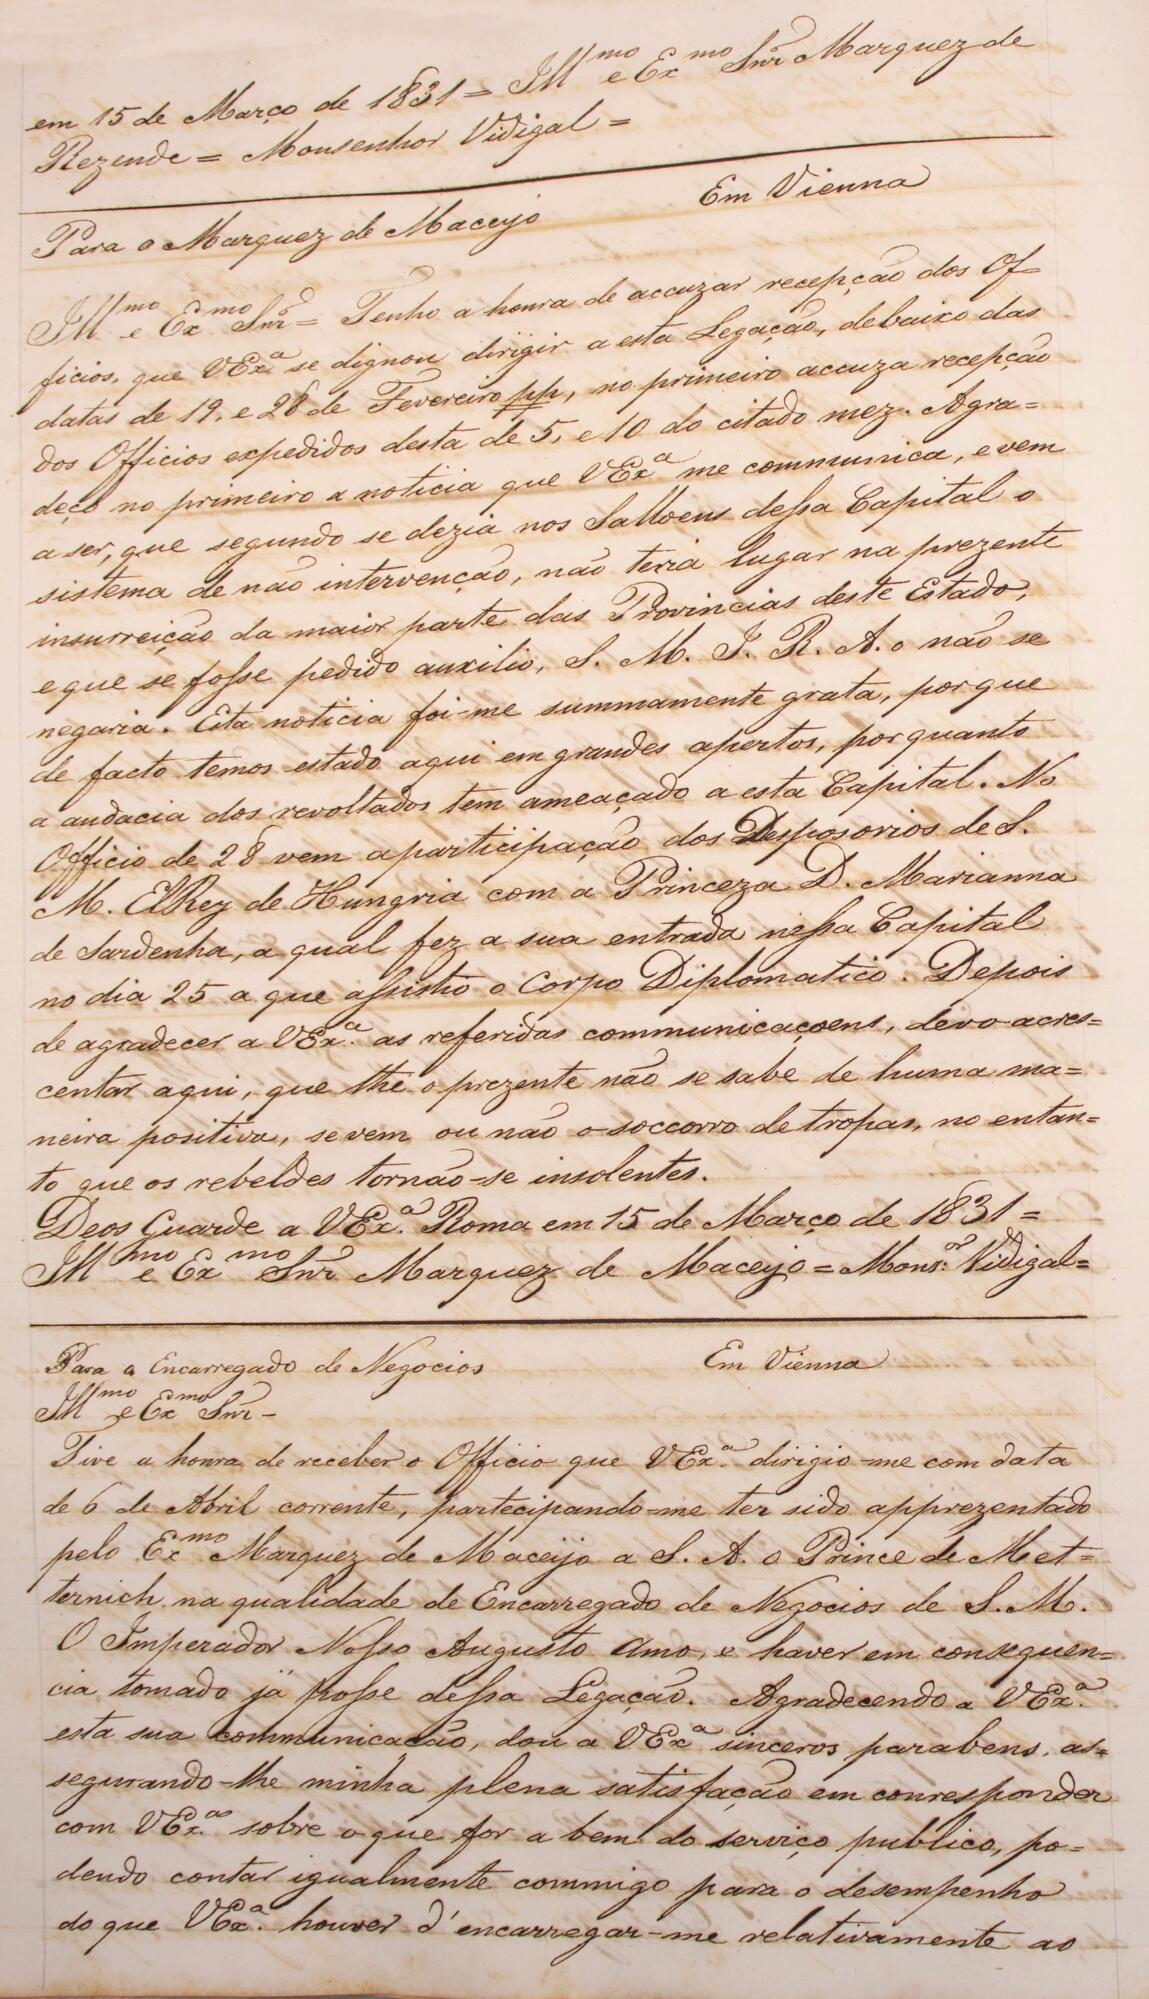 em 15 de Março de 1831 = Ill.mo e Ex.mo Snr Marquez de
Rezende = Monsenhor Vidigal =
Para o Marquez de Maceyo Em Vienna
Ill.mo e Ex.mo Snr = Tenho a honra de accuzar recepção dos Of=
ficios, que VEx.a se dignou dirigir a esta Legação, debaixo das
datas de 19, e 28 de Fevereiro pp, no primeiro accuza recepção
dos Officios expedidos desta de 5, e 10 do citado mez. Agra=
deço no primeiro a noticia que VEx.a me communica, e vem
a ser, que segundo se dezia nos Salloens dessa Capital o
sistema de não intervenção, não teria lugar na prezente
insurreição da maior parte das Provincias deste Estado,
e que se fosse pedido auxilio, S. M. I. R. A. o não se
negaria. Esta noticia foi-me summamente grata, porque
de facto temos estado aqui em grandes apertos, por quanto
a audacia dos revoltados tem ameaçado a esta Capital. No
Officio de 28 vem a participação dos Desposorios de S.
M. ElRey de Hungria com a Princeza D. Marianna
de Sardenha, a qual fez a sua entrada nessa Capital
no dia 25 a que assistio o Corpo Diplomatico. Depois
de agradecer a VEx.a as referidas communicaçoens, devo acres=
centar aqui, que thé o prezente não se sabe de huma ma=
neira positiva, se vem ou não o soccorro de tropas, no entan=
to que os rebeldes tornão-se insolentes.
Deos Guarde a VEx.a Roma em 15 de Março de 1831 =
Ill.mo e Ex.mo Snr Marquez de Maceyo = Mons.or Vidigal =
Para o Encarregado de Negocios Em Vienna
Ill.mo e Ex.mo Snr -
Tive a honra de receber o Officio que VEx.a dirigio-me com data
de 6 de Abril corrente, partecipando-me ter sido apprezentado
pelo Ex.mo Marquez de Maceijo a S. A. o Prince de Met=
ternich na qualidade de Encarregado de Negocios de S. M.
O Imperador Nosso Augusto Amo, e haver em consequen=
cia tomado já posse dessa Legação. Agradecendo a VEx.a
esta sua communicação, dou a VEx.a sinceros parabens, as=
segurando-lhe minha plena satisfação em conresponder
com VEx.a sobre o que for a bem do serviço publico, po=
dendo contar igualmente commigo para o desempenho
do que VEx.a houver d'encarregar-me relativamente ao